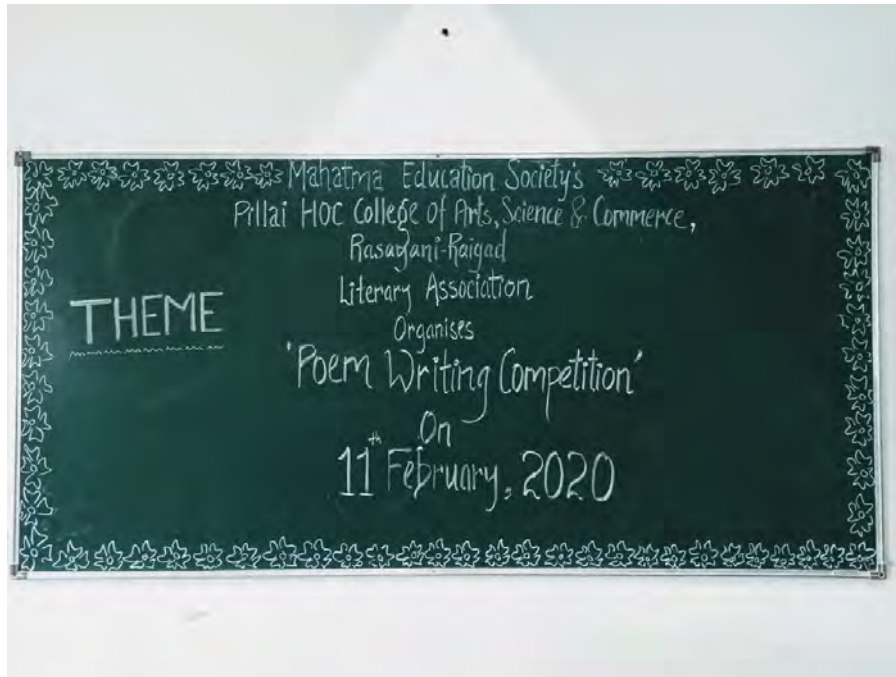 Mahatma Education Society's
Pillai HOC College of Arts, Science & Commerce,
Rasayani-Raigad
Literary Association
Organises
'Poem Writing Competition'
On
11th February, 2020
THEME